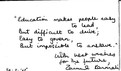 "Education makes people easy
to lead,
But difficult to drive;
Easy to govern,
But impossible to enslave."
With best wishes
for the future,